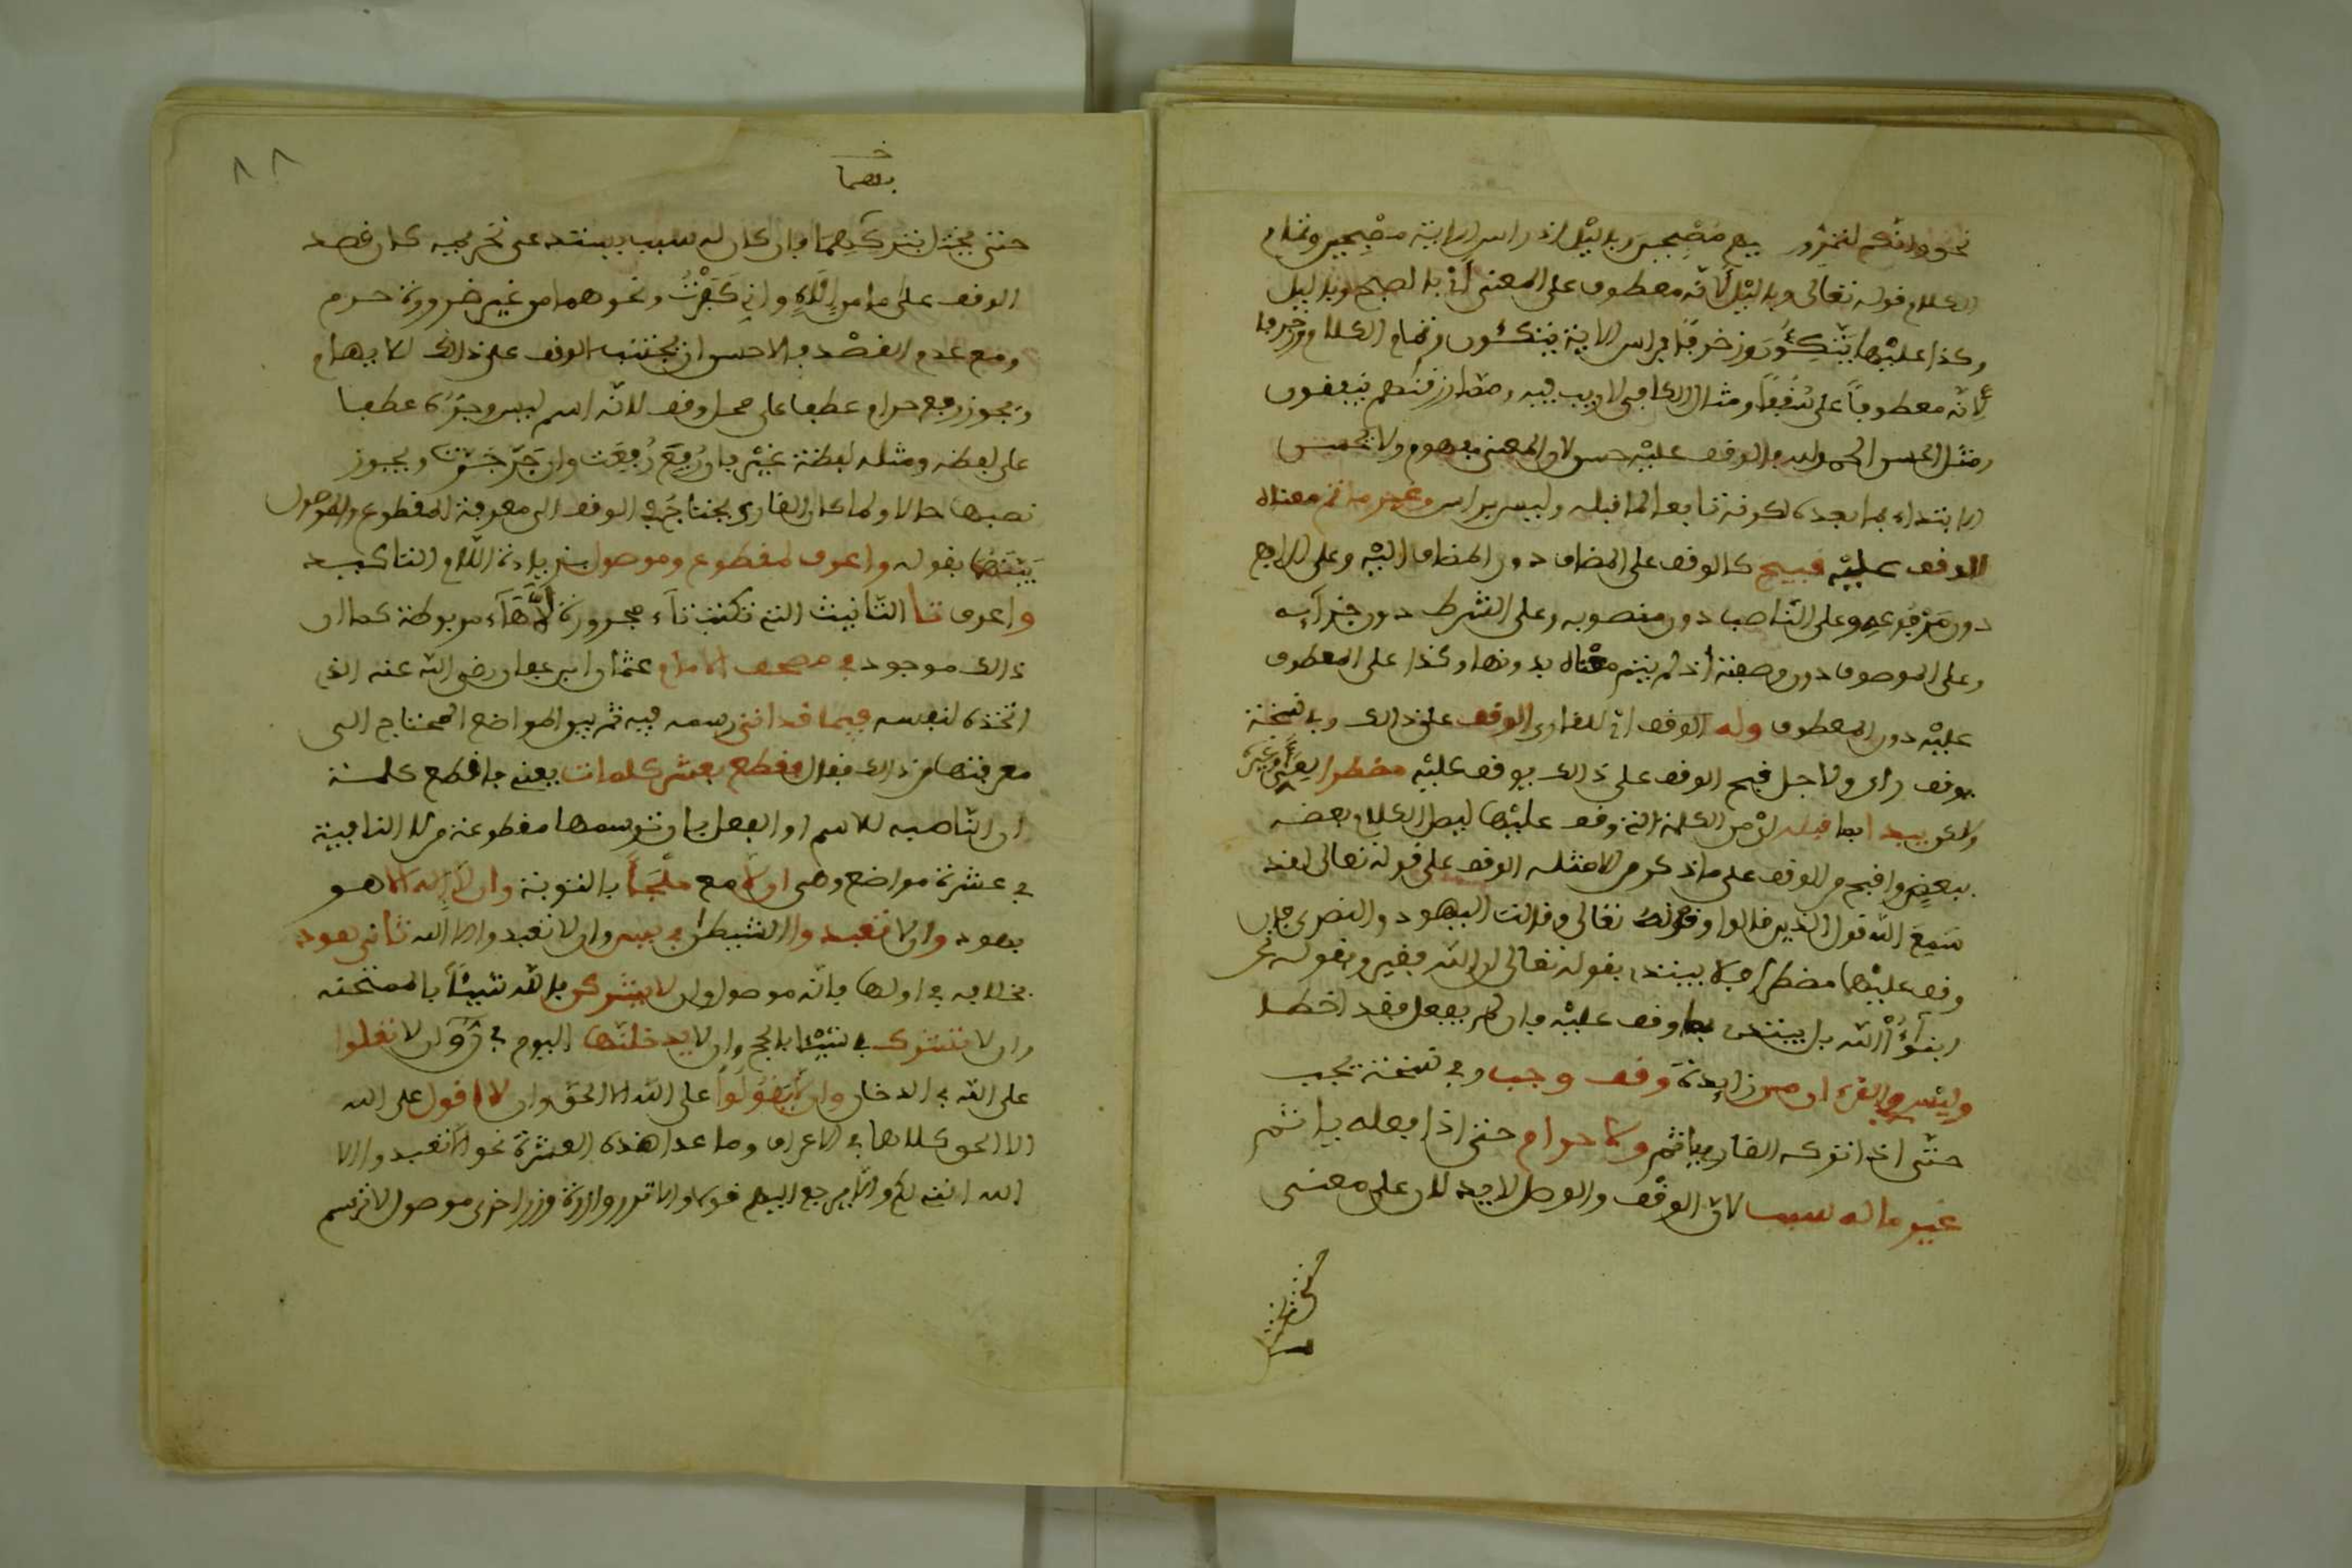 نحو وانكم لتمرون عليهم مصبحين وباليل اذ راس الاية مصبحين وتمام
الكلام قوله تعالى وباليل لانه معطوف على المعنى اي بالصبح وباليل
وكذا عليها يتكئون وزخرفا فراس الاية يتكئون وتمام الكلام وزخرفا
لانه معطوفا على سقفا ومثال الكافي لا ريب فيه ومما رزقنهم ينفقون
ومثل الحسن الحمد لله فالوقف عليه حسن لان المعنى مفهوم ولا يحسن
الابتداء بما بعده لكونه تابعا لما قبله وليس براس وغير ما تم معناه
الوقف عليه قبيح كالوقف على المضاف دون المضاف اليه وعلى الرافع
دون مرفوعه وعلى الناصب دون منصوبه وعلى الشرط دون جزآيه
وعلى الموصوف دون صفته اذ لم يتم معناه بدونها وكذا على المعطوف
عليه دون المعطوف وله الوقف اي للقاري الوقف على ذالك وفي نسخة
يوقف اي ولاجل قبح الوقف على ذالك يوقف عليه مضطرا
ولكن يبدا بما قبله اي من الكلمة التي وقف عليها ليصل الكلام بعضه
ببعض واقبح من الوقف على ما ذكر من الامثلة الوقف على قوله تعالى لقد
سمع الله قول الذين قالوا وقوله تعالى وقالت اليهود والنصرى فان
وقف عليها مضطرا فلا يبتدء بقوله تعالى ان الله فقير وبقوله نحن
ابنؤا الله بل يبتدئ بما وقف عليه فان لم يفعل فقد اخطا
وليس في القرءان من زايدة وقف وجب وفي نسخة يجب
حتى اذا تركه القاري ياثم ولا حرام حتى اذا فعله ياثم
غير ماله سبب لان الوقف والوصل لا يدلان على معنى
بفصما
٨٨
حتى يختل بتركهما فان كان له سبب يستدعى تحريمه كان قصد
الوقف على ما من اله واني كفرت ونحوهما من غير ضرورة حرم
ومع عدم القصد فالاحسن ان يجتنب الوقف على ذالك للايهام
ويجوز رفع حرام عطفا على محل وقف لانه اسم ليس وجره عطفا
على لفظه ومثله لفظة غير فان رفع رفعت وان جر جرت ويجوز
نصبها حالا ولما كان القاري يحتاج في الوقف الى معرفة المقطوع والموصول
بينهما بقوله واعرف لمقطوع وموصول بزيادة اللام للتاكيد
واعرف تا التانيث التي تكتب تاء مجرورة لا هاء مربوطة كما ان
ذالك موجود في مصحف الامام عثمان ابن عفان رضي الله عنه الذي
اتخذه لنفسه فيما قد اتى رسمه فيه ثم بين المواضع المحتاج الى
معرفتها من ذالك فقال فاقطع بعشر كلمات يعني فاقطع كلمة
ان الناصبه للاسم او الفعل بان ترسمها مقطوعة من لا النافية
في عشرة مواضع وهي ان لا مع ملجأ بالتوبة وان لا اله الا هو
بهود وان لا تعبدوا الشيطن في يس وان لا تعبدوا الا الله ثاني هود
بخلافه في اولها فانه موصول وان لا يشركن بالله شيئا بالممتحنه
وان لا تشرك بي شيئا بالحج وان لا يدخلنها اليوم في ن وان لا تعلوا
على الله في الدخان وان لا يقولوا على الله الا الحق وان لا اقول على الله
الا الحق كلاهما في الاعراف وما عدا هذه العشرة نحو الا تعبدوا الا
الله انني لكم والا يرجع اليهم قولا والا تزر وازرة وزر اخرى موصول لا ترسم